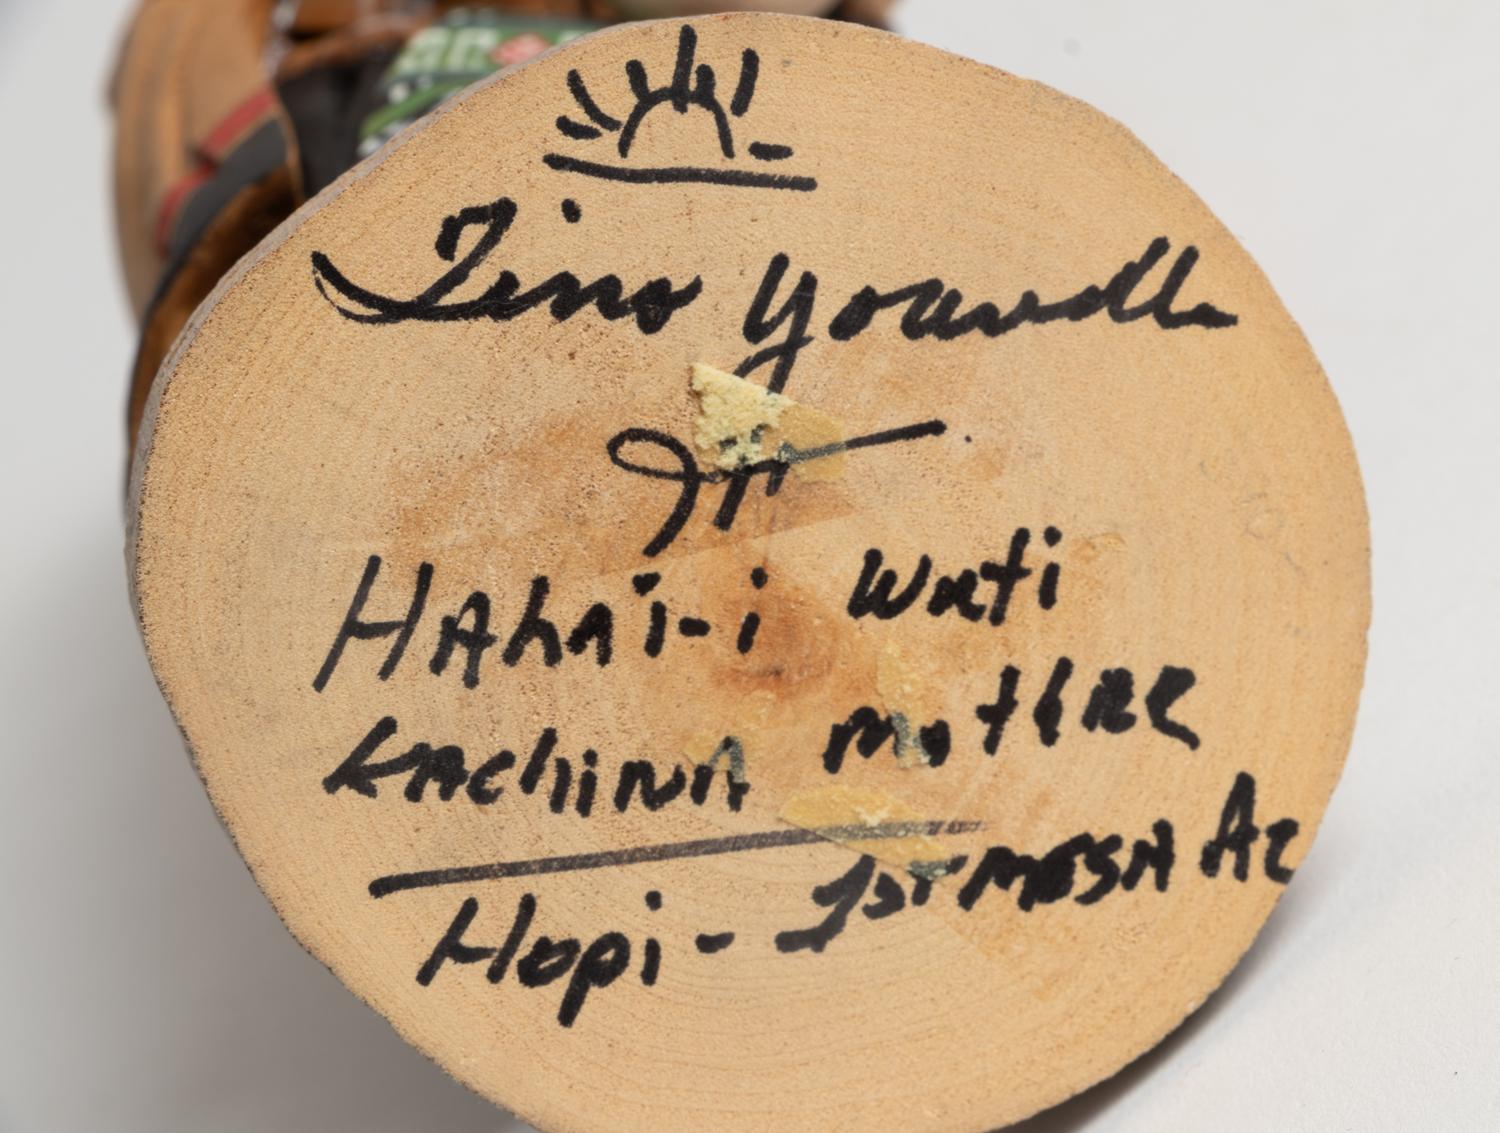 Tino Youvella
Jr
HAhAi-i Wuti
KAchiNA MotheR
Hopi - 1st MESA Az